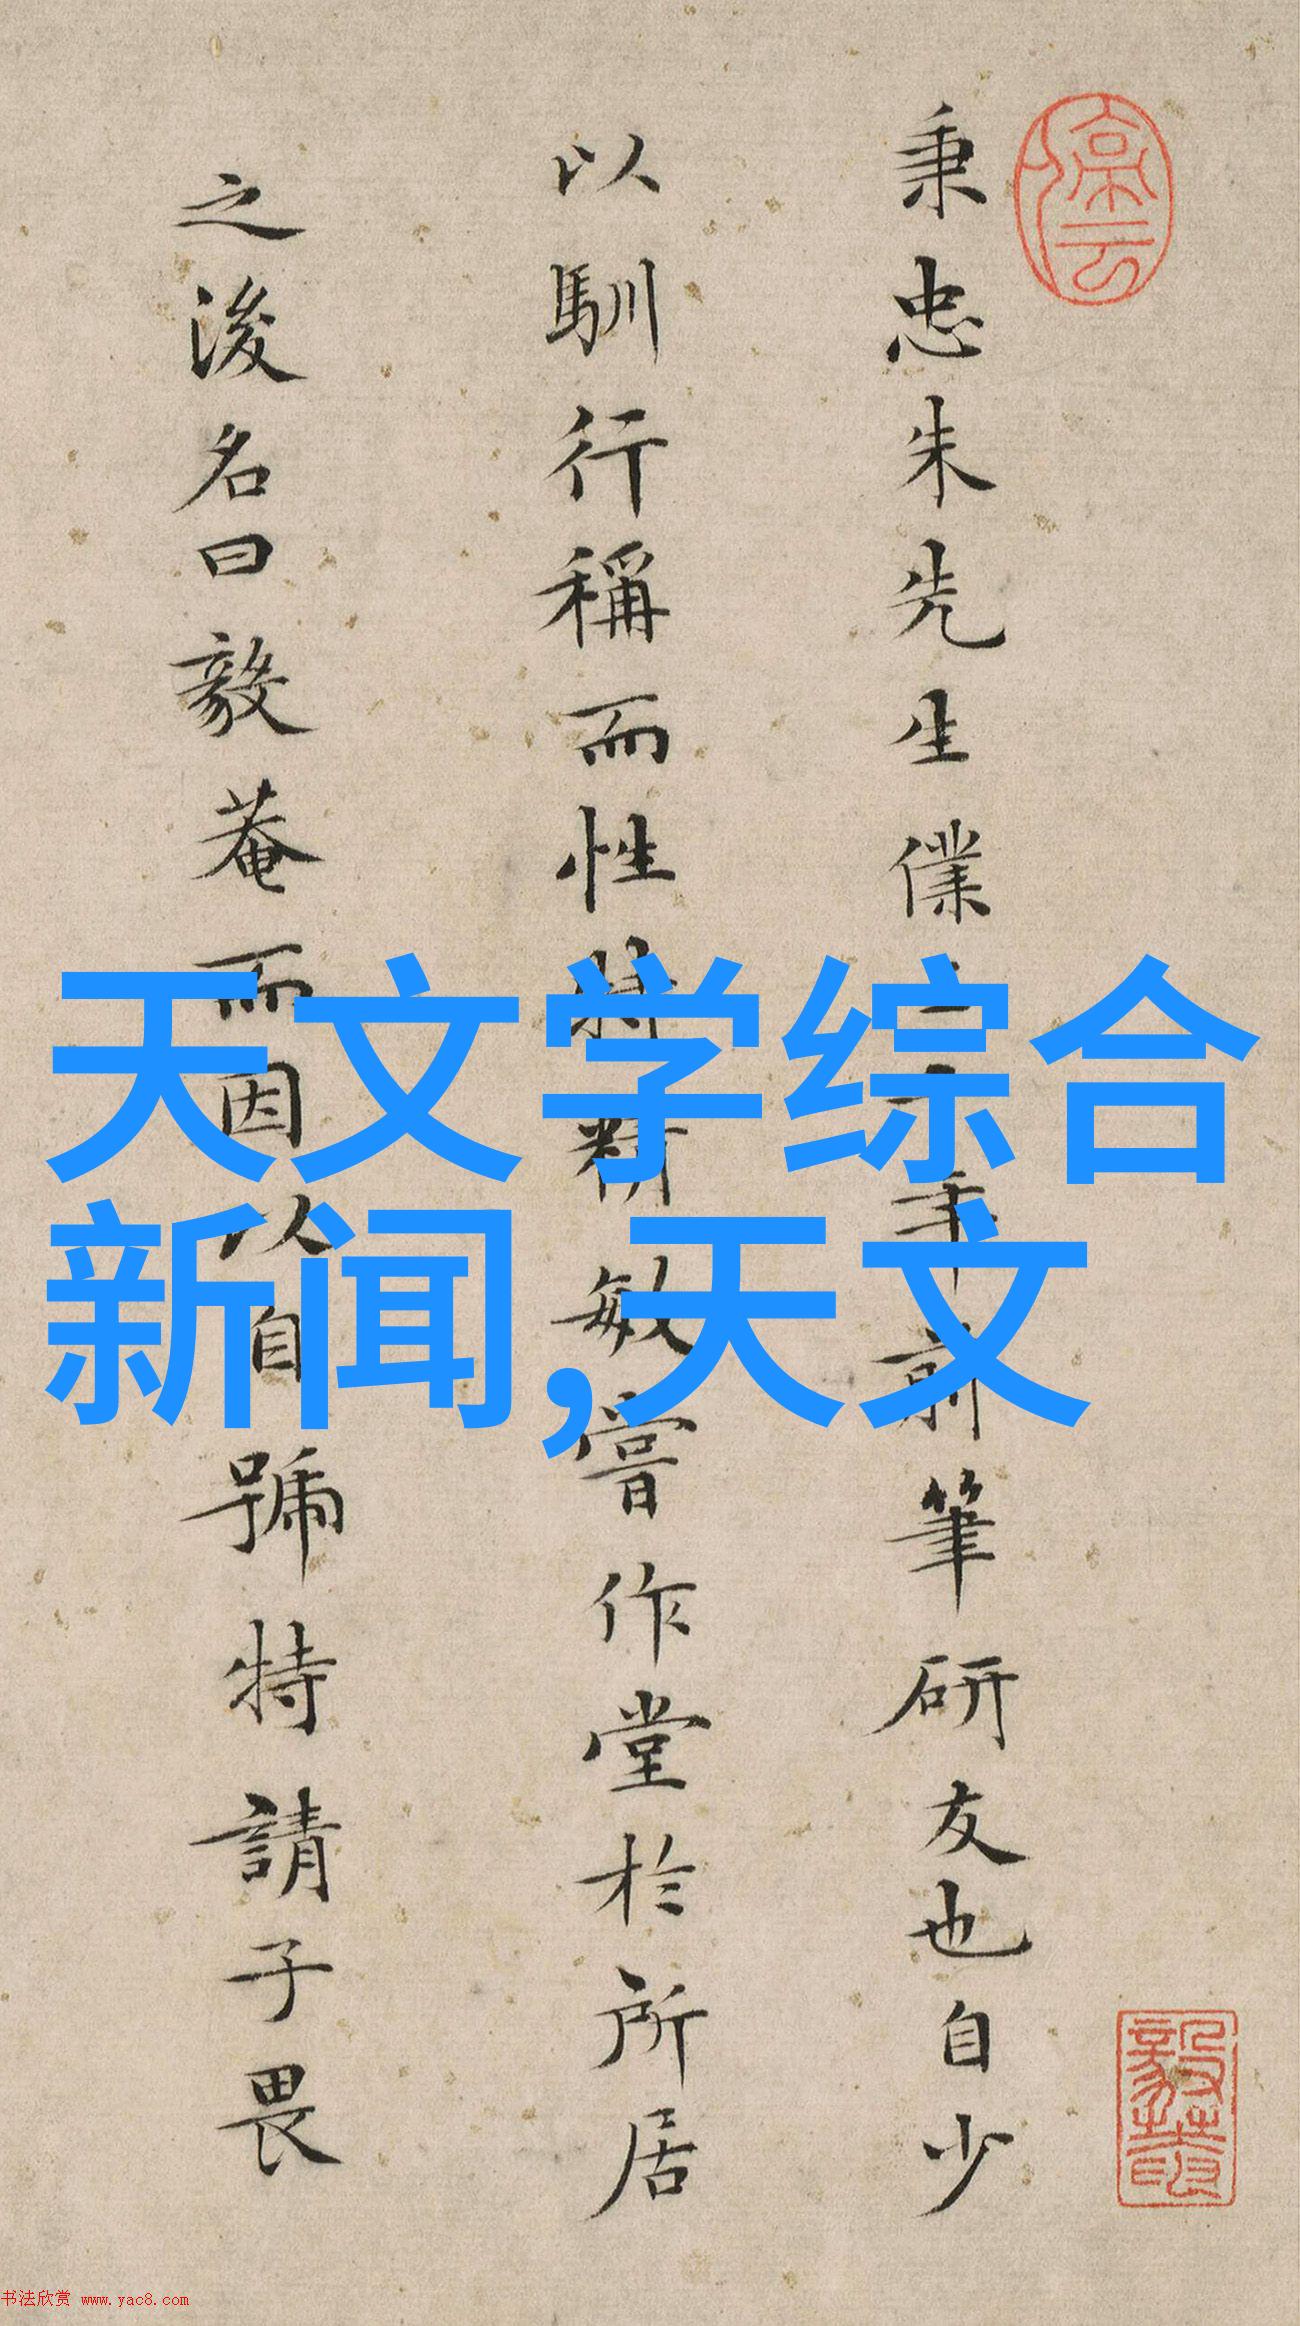 秉忠朱先生僕三十年前筆研友也自少
以馴行稱而性特精敏嘗作堂於所居
之後名曰毅菴而因以自號特請子畏
天文学综合
新闻,天文
书法欣赏 www.yac8.com